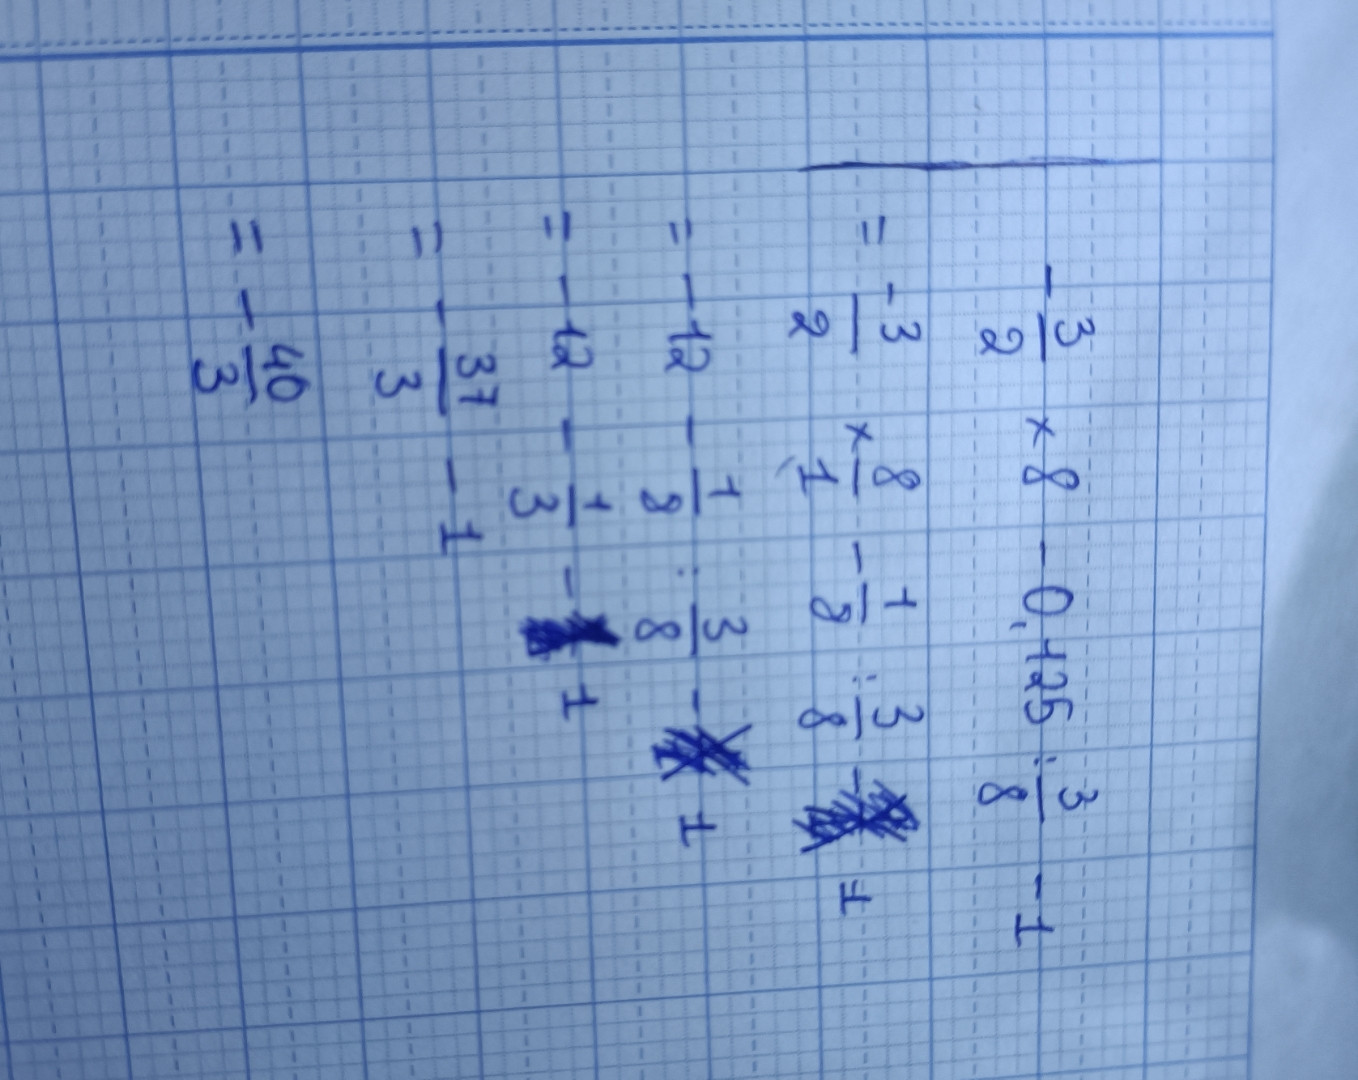 - 3/2 × 8 - 0,125 : 3/8 - 1
= -3/2 × 8/1 - 1/8 : 3/8 - 1
= - 12 - 1/8 : 3/8 - 1
= - 12 - 1/3 - 1
= - 37/3 - 1
= - 40/3